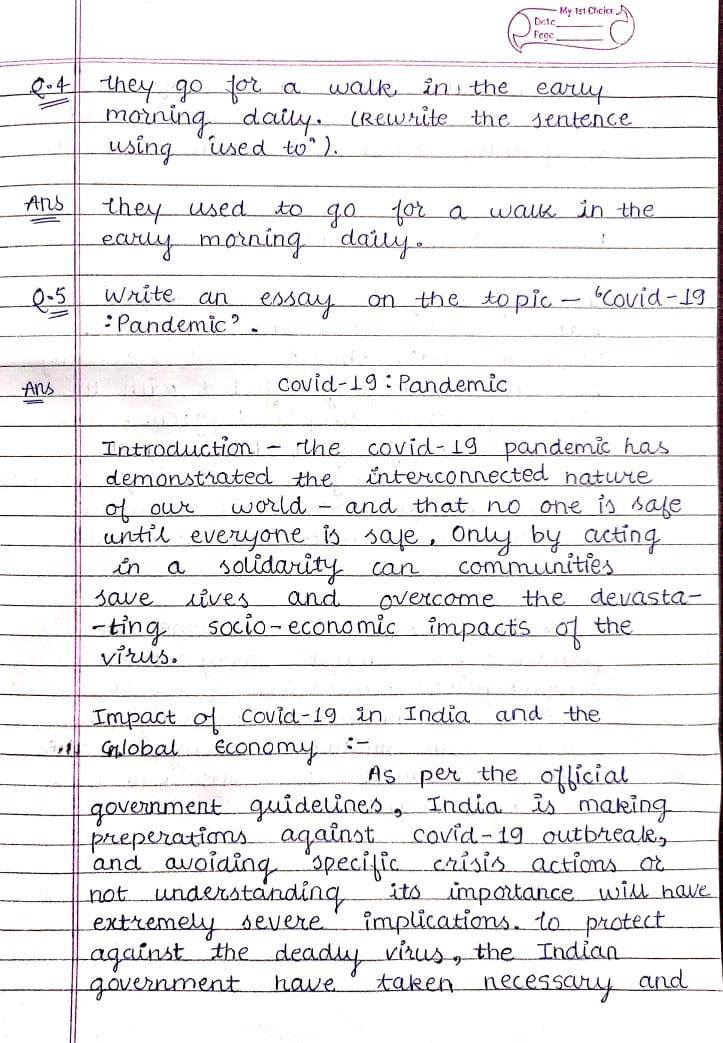 My 1st Choice
Date
Page
Q.4 they go for a walk in the early
morning daily. (Rewrite the sentence
using "used to").
Ans they used to go for a walk in the
early morning daily.
Q.5 Write an essay on the topic – "Covid-19
:Pandemic".
Ans covid-19 : Pandemic
Introduction :- the covid-19 pandemic has
demonstrated the interconnected nature
of our world – and that no one is safe
until everyone is safe, Only by acting
in a solidarity can communities
save lives and overcome the devasta-
-ting socio-economic impacts of the
virus.
Impact of covid-19 in India and the
Global Economy :-
As per the official
government guidelines, India is making
preperations against covid-19 outbreak,
and avoiding specific crisis actions or
not understanding its importance will have
extremely severe implications. to protect
against the deadly virus, the Indian
government have taken necessary and